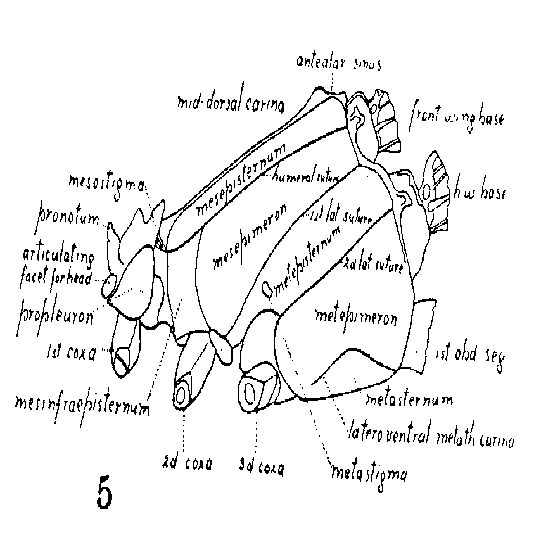 antealar sinus
mid-dorsal carina
front wing base
mesepisternum
humeral suture
mesostigma
h w base
pronotum
mesepimeron
1st lat suture
articulating
facet for head
metepisternum
2d lat suture
propleuron
metepimeron
1st coxa
1st abd seg
mesinfraepisternum
metasternum
latero ventral metath carina
2d coxa
3d coxa
metastigma
5